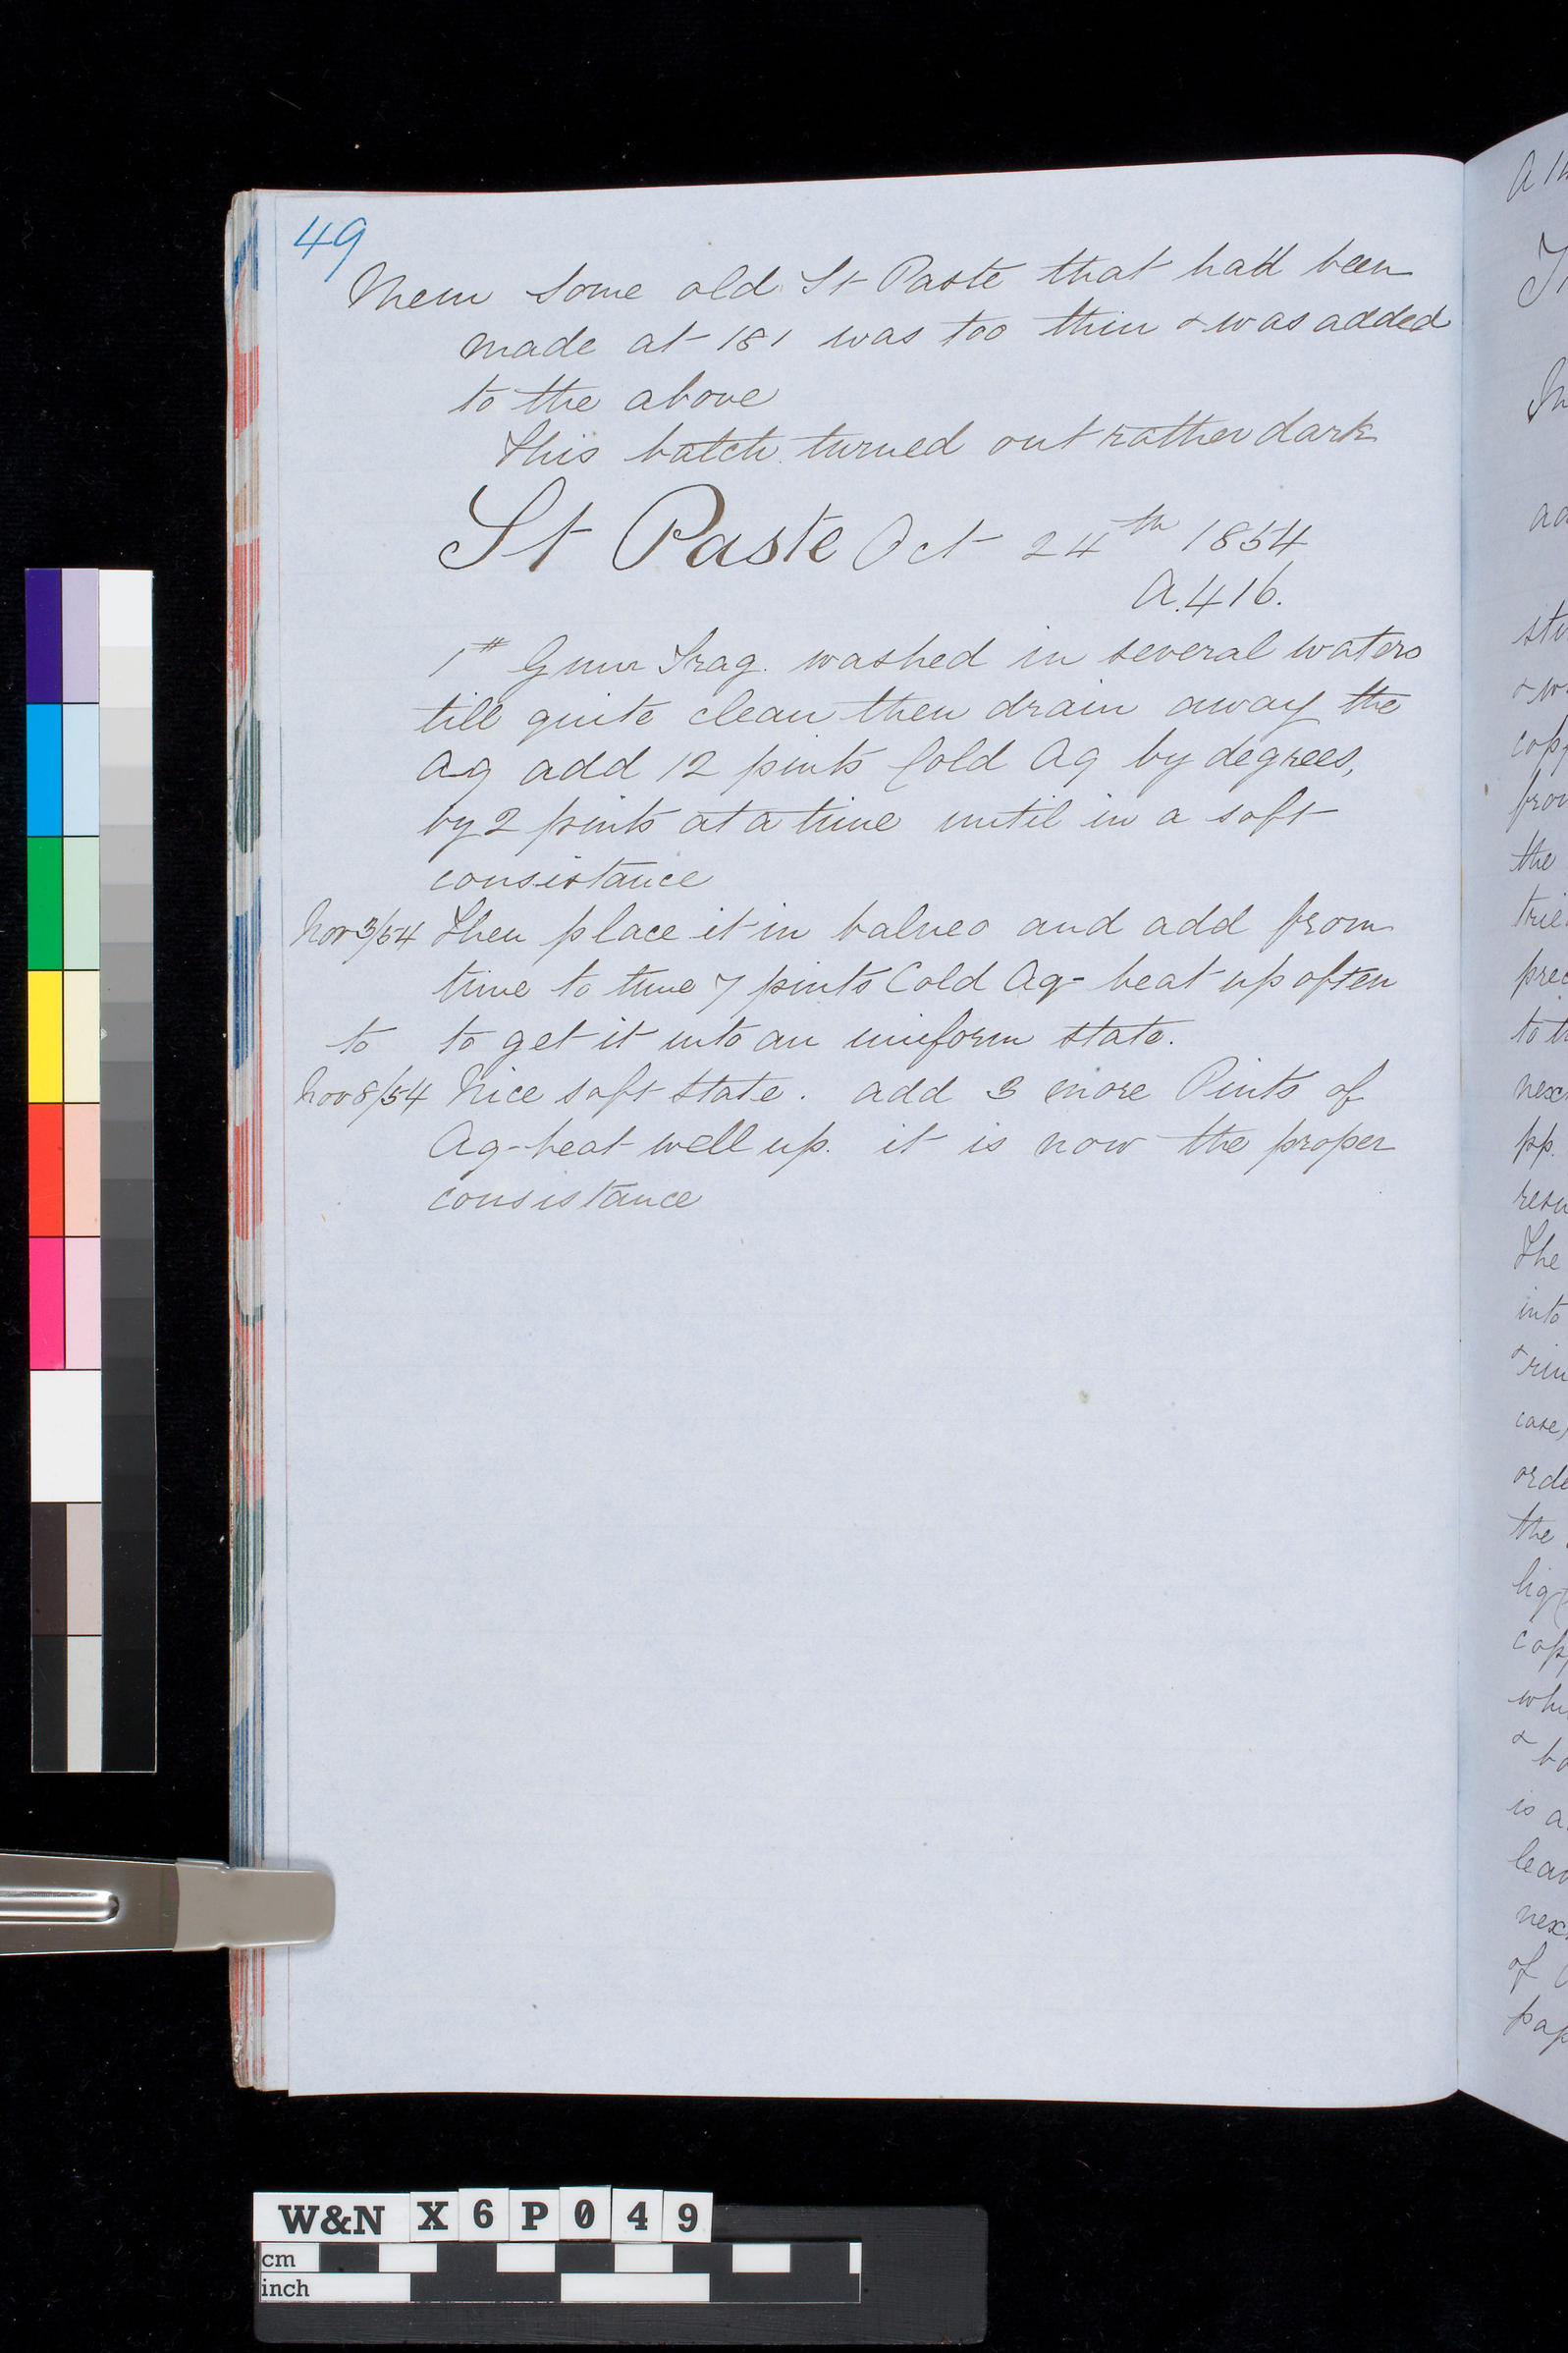 49
Mem Some old St Paste that had been
made at 181 was too thin & was added
to the above
This batch turned out rather dark
St Paste Oct 24th 1854
A.416.
1# Gum Trag. washed in several waters
till quite clean then drain away the
Aq add 12 pints Cold Aq by degrees,
by 2 pints at a time until in a soft
consistance
Nov 3/54 Then place it in balneo and add from
time to time 7 pints Cold Aq- beat up often
to to get it into an uniform state.
Nov 8/54 Nice soft state. add 3 more Pints of
Aq- beat well up. it is now the proper
consistance
W&N X6P049
cm
inch